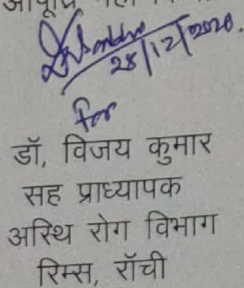 28/12/2020.
for
डॉ, विजय कुमार
सह प्राध्यापक
अस्थि रोग विभाग
रिम्स, राँची